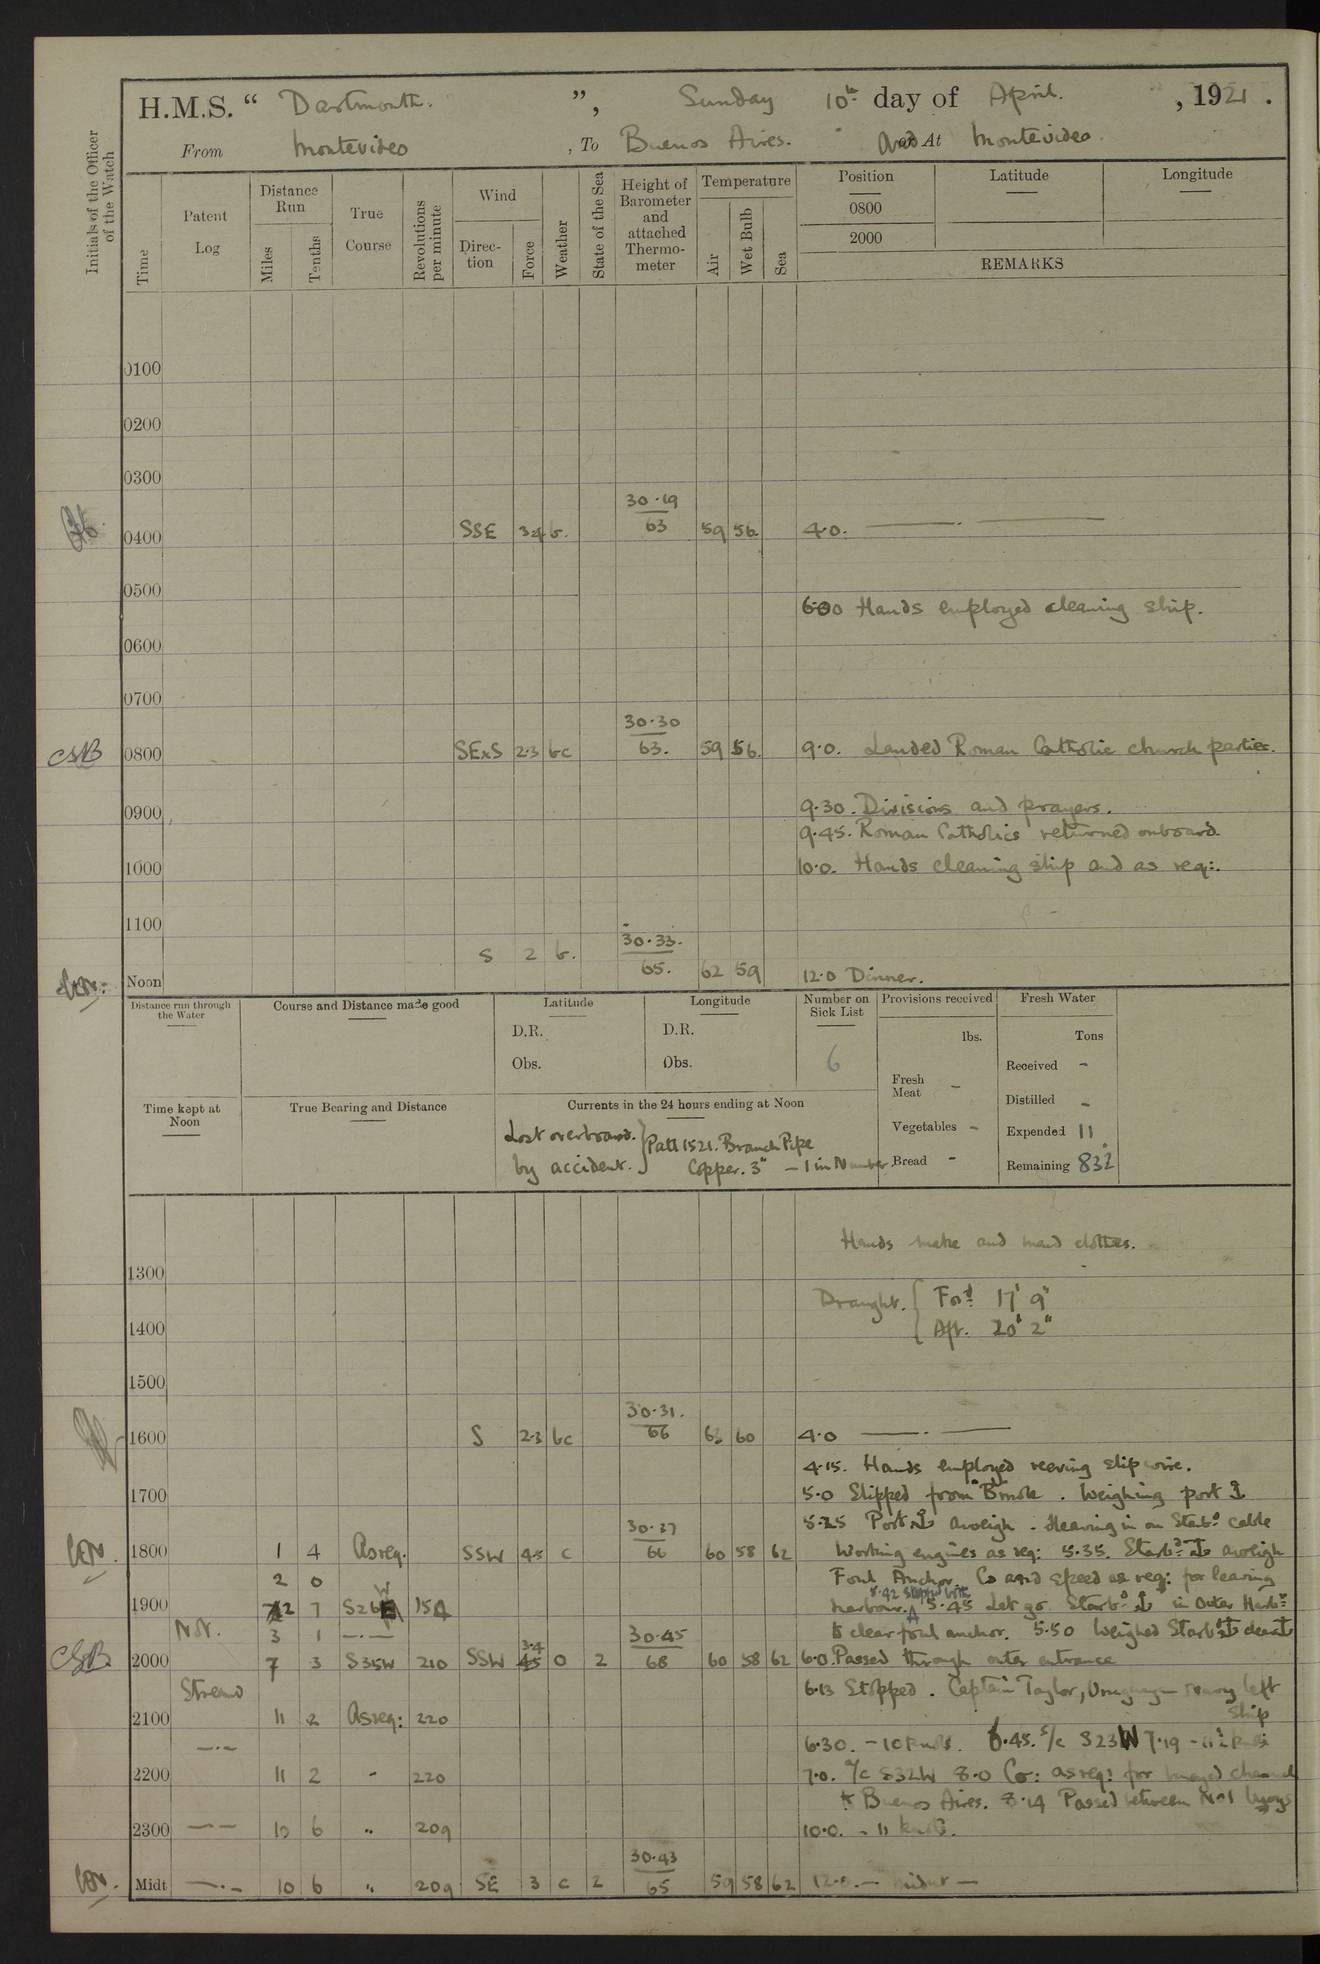 H.M.S. “ Dartmouth. ”, Sunday 10th day of April. , 1921 .
From Montevideo , To Buenos Aires. and At Montevideo.
Initials of the Officer of the Watch
Time
Patent Log
Distance Run
Miles
Tenths
True Course
Revolutions per minute
Wind
Direction
Force
Weather
State of the Sea
Height of Barometer and attached Thermometer
Temperature
Air
Wet Bulb
Sea
Position
0800
2000
Latitude
Longitude
REMARKS
0100
0200
0300
30.19
0400 SSE 3.4 b. 63 59 56 4.0. — . —
0500
6.00 Hands employed cleaning ship.
0600
0700
30.30
CSB 0800 SExS 2.3 bc 63. 59 56. 9.0. Landed Roman Catholic church parties.
0900 9.30. Divisions and prayers.
9.45. Roman Catholics returned onboard.
1000 10.0. Hands cleaning ship and as req:.
1100
S 2 b. 30.33.
Noon 65. 62 59 12.0 Dinner.
Distance run through the Water
Course and Distance made good
Latitude
D.R.
Obs.
Longitude
D.R.
Obs.
Number on Sick List
6
Provisions received
lbs.
Fresh Meat –
Vegetables –
Bread –
Fresh Water
Tons
Received –
Distilled –
Expended 11
Remaining 832
Time kept at Noon
True Bearing and Distance
Currents in the 24 hours ending at Noon
Lost overboard. } Patt 1521. Branch Pipe
by accident. Copper. 3" – 1 in Number.
Hands make and mend clothes.
1300
Draught. { Ford 17' 9"
1400 Aft. 20' 2"
1500
30.31.
1600 S 2.3 bc 66 63 60 4.0 — . —
4.15. Hands employed reeving slip wire.
1700 5.0 Slipped from . Weighing port ⚓
30.37 5.25 Port ⚓ aweigh. Heaving in on Starbd cable
1800 1 4 As req. SSW 4.5 c 66 60 58 62 Working engines as req: 5.35. Starbd ⚓ aweigh
2 0 Foul Anchor. Co and speed as req: for leaving
1900 2 7 S26W 154 harbour. 5.42 Stopped both 5.45 Let go Starbd ⚓ in Outer Harbr
3 1 — . — to clear foul anchor. 5.50 Weighed Starbd ⚓ clear ⚓
CSB. 2000 7 3 S35W 210 SSW 3.4 0 2 30.45 68 60 58 62 6.0. Passed through outer entrance
Stream 6.13 Stopped. Captain Taylor, Uruguayan navy left
2100 11 2 As req: 220 ship
— . — 6.30. – 10 knots. 6.45. s/c S23W 7.19 –
2200 11 2 " 220 7.0. a/c S32W 8.0 Co: as req: for buoyed channel
to Buenos Aires. 8.14 Passed between No 1 buoys
2300 — — 10 6 " 209 10.0. – 11 knots.
30.43
Midt — . — 10 6 " 209 SE 3 c 2 65 59 58 62 12.0. —